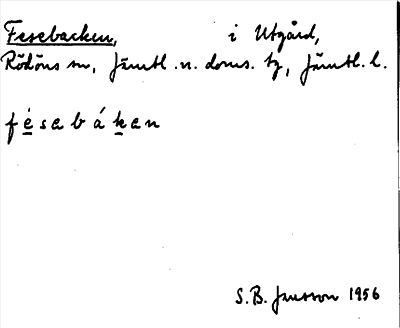 Fesebacken, i Utgård,
Rödöns sn, Jämtl. n. doms. tg, Jämtl. l.
fésabákan
S.B. Jansson 1956